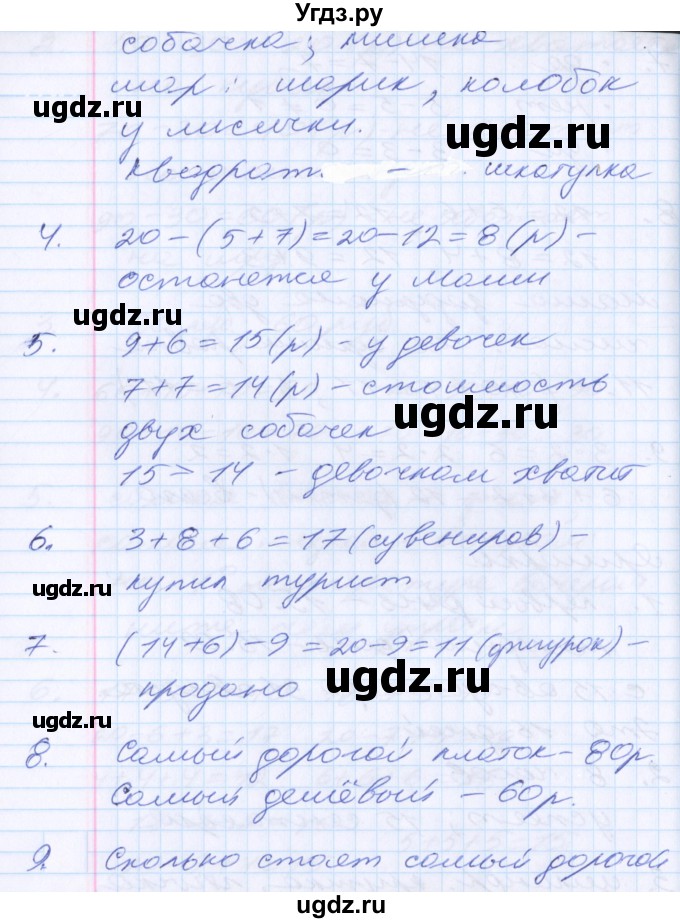 Угдз.ру
собачка; мишка
шар: шарик, колобок
у лисички.
Квадрат. - шкатулка
4. 20-(5+7)=20-12=8(р)-
останется у Маши
5. 9+6=15(р)-у девочек
7+7=14(р)-стоимость
двух собачек
15>14 - девочкам хватит
6. 3+8+6=17(сувениров)-
купил турист
7. (14+6)-9=20-9=11(фигурок)-
продано
8. Самый дорогой платок-80р.
Самый дешёвый-60р.
9 Сколько стоят самый дорогой
ugdz.ru
ugdz.ru
ugdz.ru
ugdz.ru
ugdz.ru
ugdz.ru
ugdz.ru
ugdz.ru
ugdz.ru